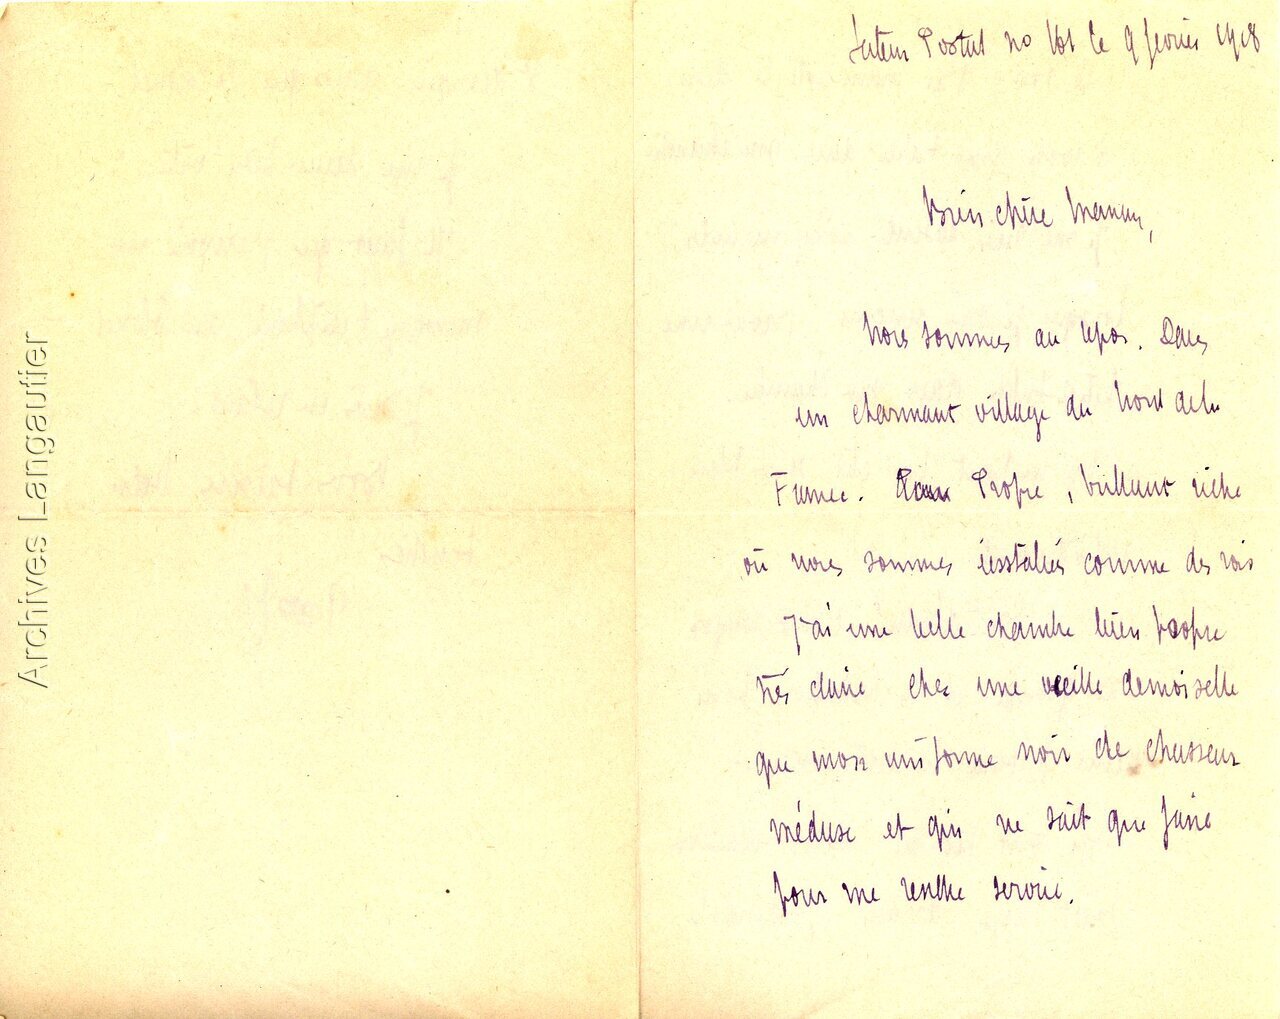 Secteur Postal no 161 le 9 février 1918
Bien chère Maman,
Nous sommes au repos. Dans
un charmant village du Nord de la
France. Propre, brillant riche
où nous sommes installés comme des rois
J'ai une belle chambre bien propre
très claire chez une vieille demoiselle
que mon uniforme noir de chasseur
méduse et qui ne sait que faire
pour me rendre service.
Archives Langautier